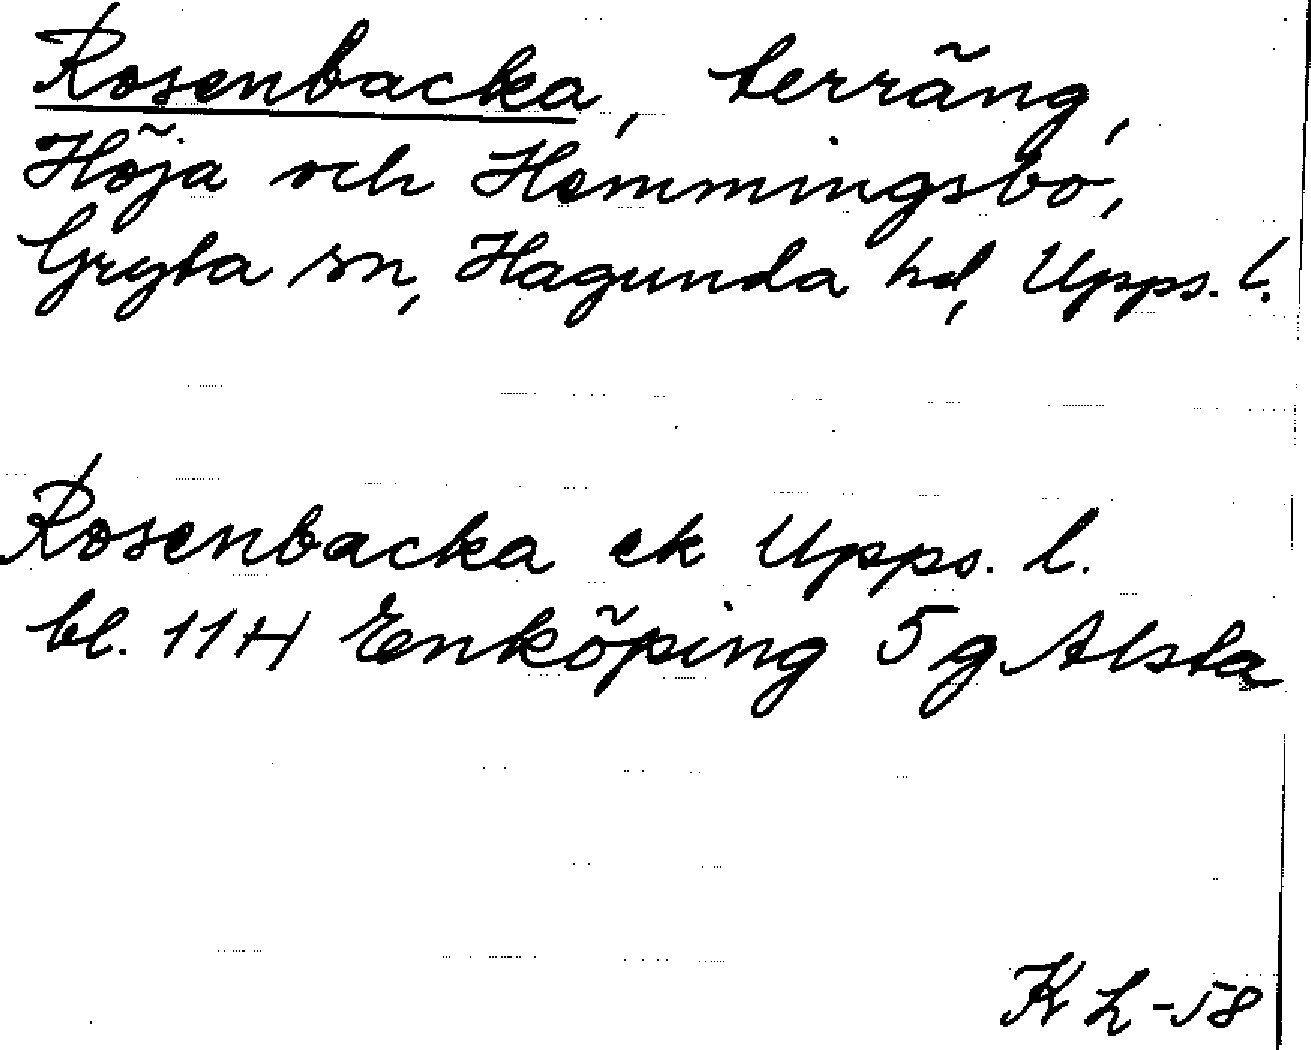 Rosenbacka, terräng,
Höja och Hemmingsbo,
Gryta sn, Hagunda hd, Upps. l.
Rosenbacka ek Upps. l.
bl. 11H Enköping 5g Alsta
K L -58